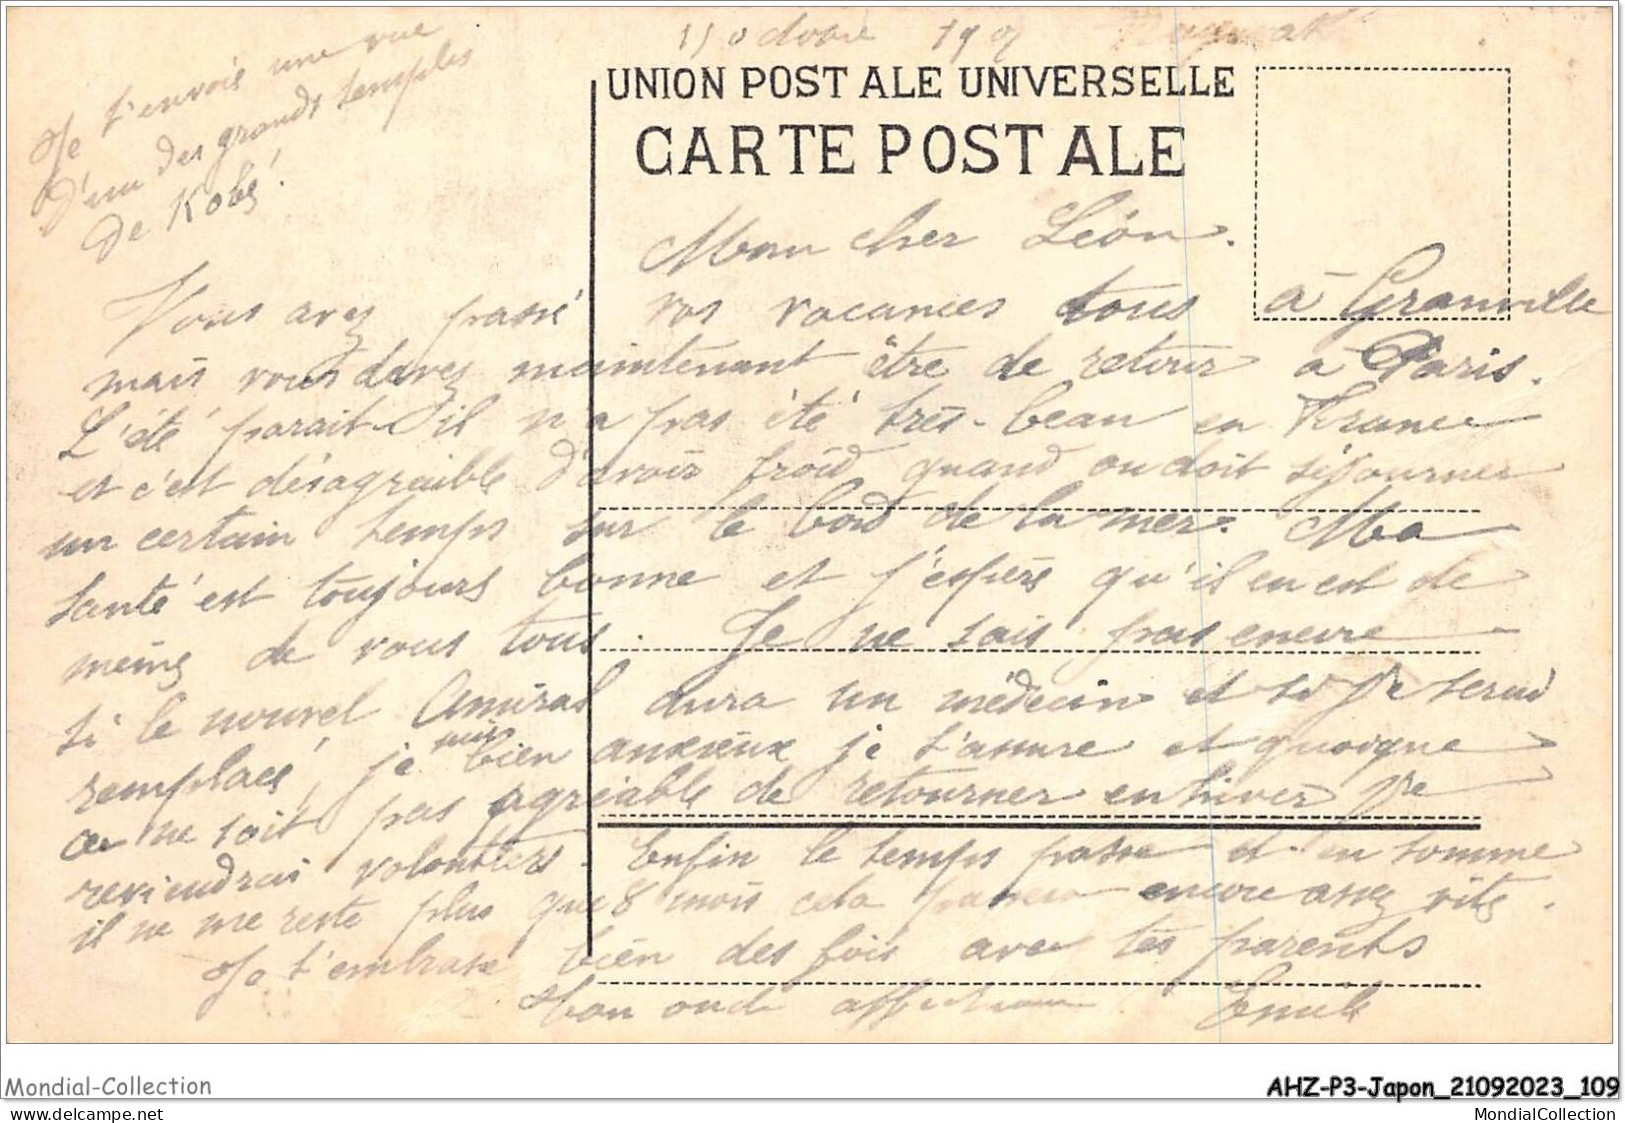 Je t'envoie une vue
d'un des grands temples
de Kobé.
octobre 190
UNION POSTALE UNIVERSELLE
CARTE POSTALE
Mon cher Léon.
Vous avez passé vos vacances tous à Granville
mais vous devez maintenant être de retour à Paris.
L'été paraît-il n'a pas été très-beau en France
et c'est désagréable d'avoir froid quand on doit séjourner
un certain temps sur le bord de la mer. Ma
santé est toujours bonne et j'espère qu'il en est de
même de vous tous. Je ne sais pas encore
si le nouvel Amiral aura un médecin et si je serai
remplacé, je suis bien anxieux je t'assure et quoique
ce ne soit pas agréable de retourner en hiver je
reviendrai volontiers. Enfin le temps passe et en somme
il ne me reste plus que 8 mois cela passera encore assez vite.
Je t'embrasse bien des fois avec tes parents
Ton oncle affectionné Emile
Mondial-Collection
AHZ-P3-Japon_21092023_109
delcampe.net
MondialCollection